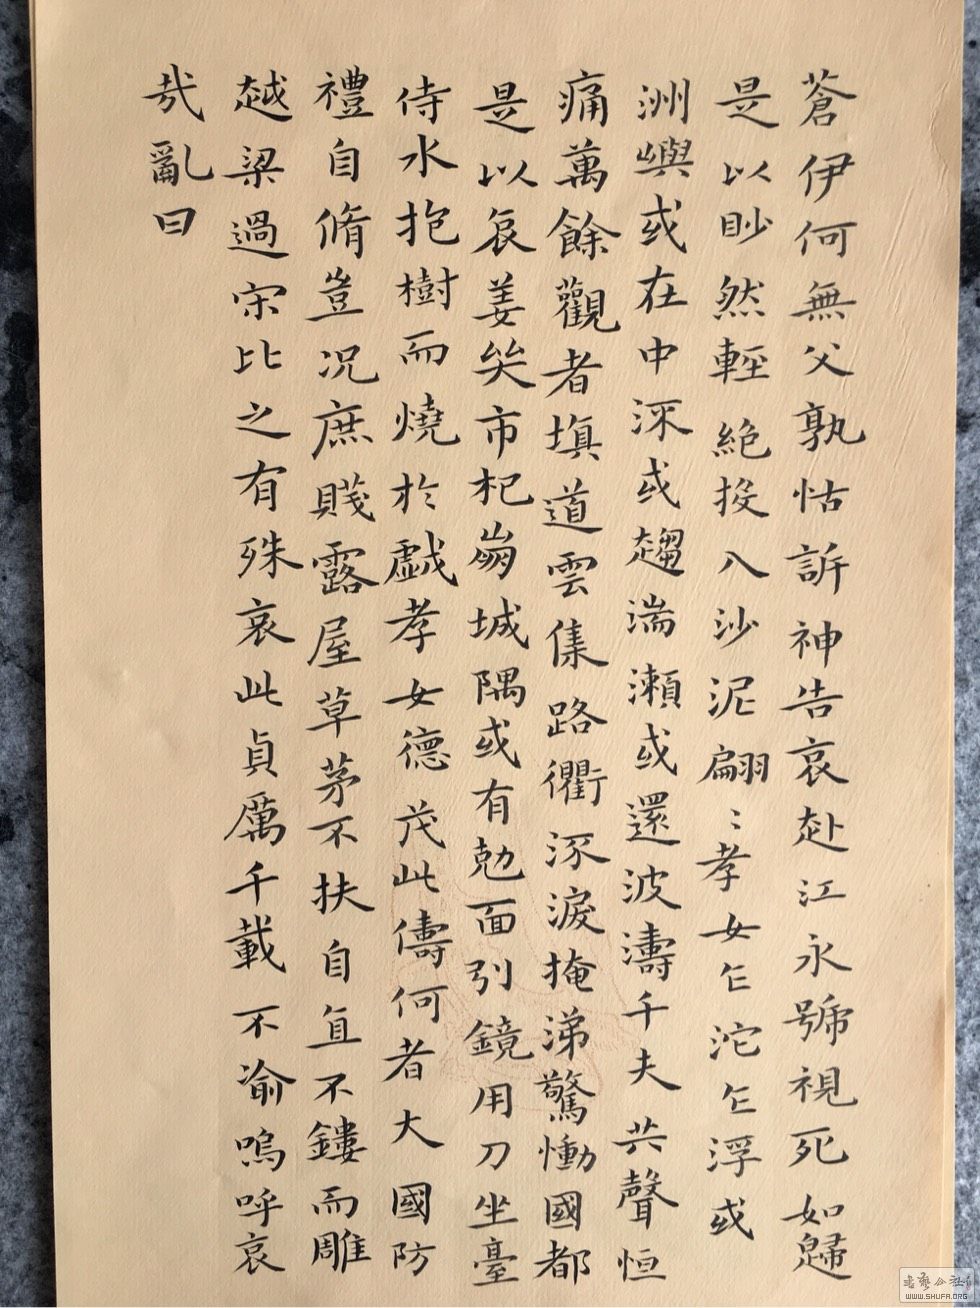 蒼伊何無父孰怙訴神告哀赴江永號視死如歸
是以眇然輕絕投入沙泥翩〻孝女乍沱乍浮或
洲嶼或在中深或趨湍瀨或還波濤千夫共聲恒
痛萬餘觀者填道雲集路衢泳淚掩涕驚慟國都
是以哀姜哭市杞崩城隅或有勊面引鏡用刀坐臺
侍水抱樹而燒於戲孝女德茂此儔何者大國防
禮自脩豈況庶賤露屋草茅不扶自直不鏤而雕
越梁過宋比之有殊哀此貞厲千載不渝嗚呼哀
哉亂曰
書藝公社
WWW.SHUFA.ORG